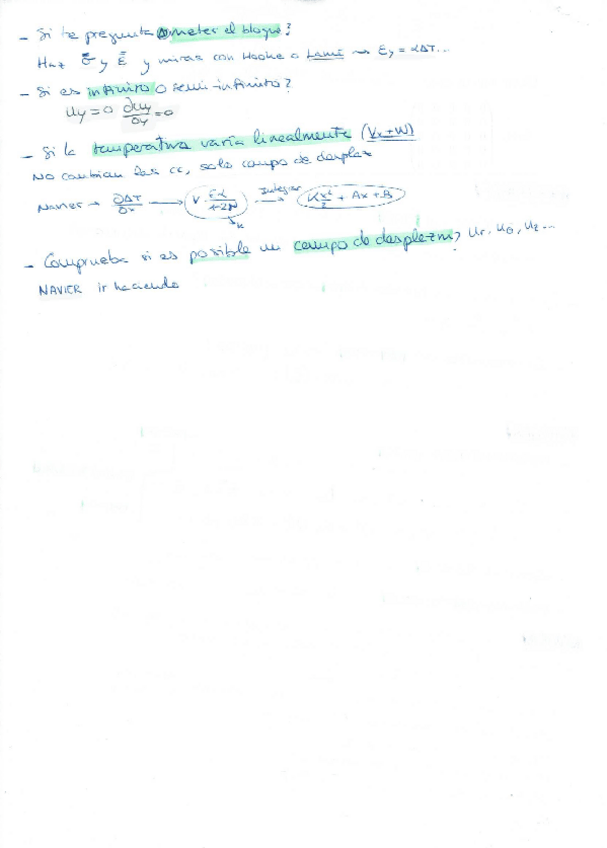 - Si te pregunta meter el bloque?
Haz σ̄ y ε̄ y miras con Hooke o Lamé → Ey = αΔT...
- Si es infinito o semi-infinito?
Uy = 0 ∂uy/∂y = 0
- Si la temperatura varía linealmente (Vx+W)
NO cambian las cc, solo campo de desplaz
Navier → ∂ΔT/∂x → V · Eα/λ+2μ Integrar → Kx²/2 + Ax + B
K
- Comprueba si es posible un campo de desplazm? Ur, Uθ, Uz...
NAVIER ir haciendo